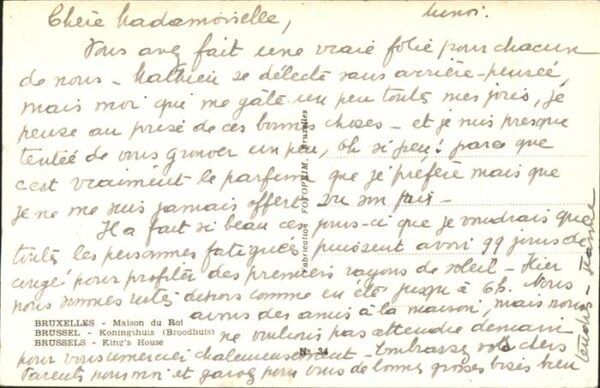 Chère Mademoiselle,
Vous avez fait une vraie folie pour chacun
de nous - Mathieu se délecte sans arrière-pensée,
mais moi qui me gâte un peu toutes mes joies, je
pense au prix de ces bonnes choses - et je suis presque
tentée de vous gronder un peu, oh si peu! parce que
c'est vraiment le parfum que je préfère mais que
je ne me suis jamais offert vu son prix -
Il a fait si beau ces jours-ci que je voudrais que
toutes les personnes fatiguées puissent avoir 99 jours de
congé pour profiter des premiers rayons de soleil - Hier
nous sommes restés dehors comme en été jusqu'à 6h. Nous
avons des amis à la maison, mais nous
ne voulions pas attendre demain
pour vous remercier chaleureusement - Embrassez vos chers
Parents pour moi et gardez pour vous de bonnes grosses bises bien
tendres -
Fabrication FOTOPRIM, Bruxelles
BRUXELLES - Maison du Roi
BRUSSEL - Koningshuis (Broodhuis)
BRUSSELS - King's House
Nr. 34